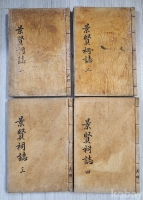 景賢祠誌 一
景賢祠誌 二
景賢祠誌 三
景賢祠誌 四